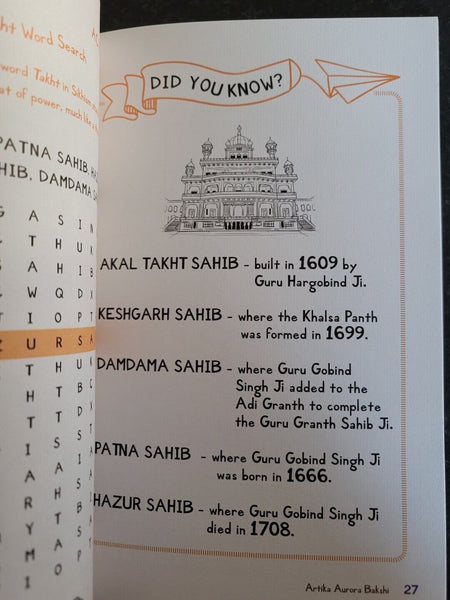 ht Word Search
word Takht in Sikhism
at of power, much like a
PATNA SAHIB,
HIB, DAMDAMA
A S I N
T H U K
A H I B
W Q D X
I O P T
U R S A
T H U K
H T
T T
I S
A A
R H
Y T
M A
I O
DID YOU KNOW?
AKAL TAKHT SAHIB - built in 1609 by
Guru Hargobind Ji.
KESHGARH SAHIB - where the Khalsa Panth
was formed in 1699.
DAMDAMA SAHIB - where Guru Gobind
Singh Ji added to the
Adi Granth to complete
the Guru Granth Sahib Ji.
PATNA SAHIB - where Guru Gobind Singh Ji
was born in 1666.
HAZUR SAHIB - where Guru Gobind Singh Ji
died in 1708.
Artika Aurora Bakshi 27